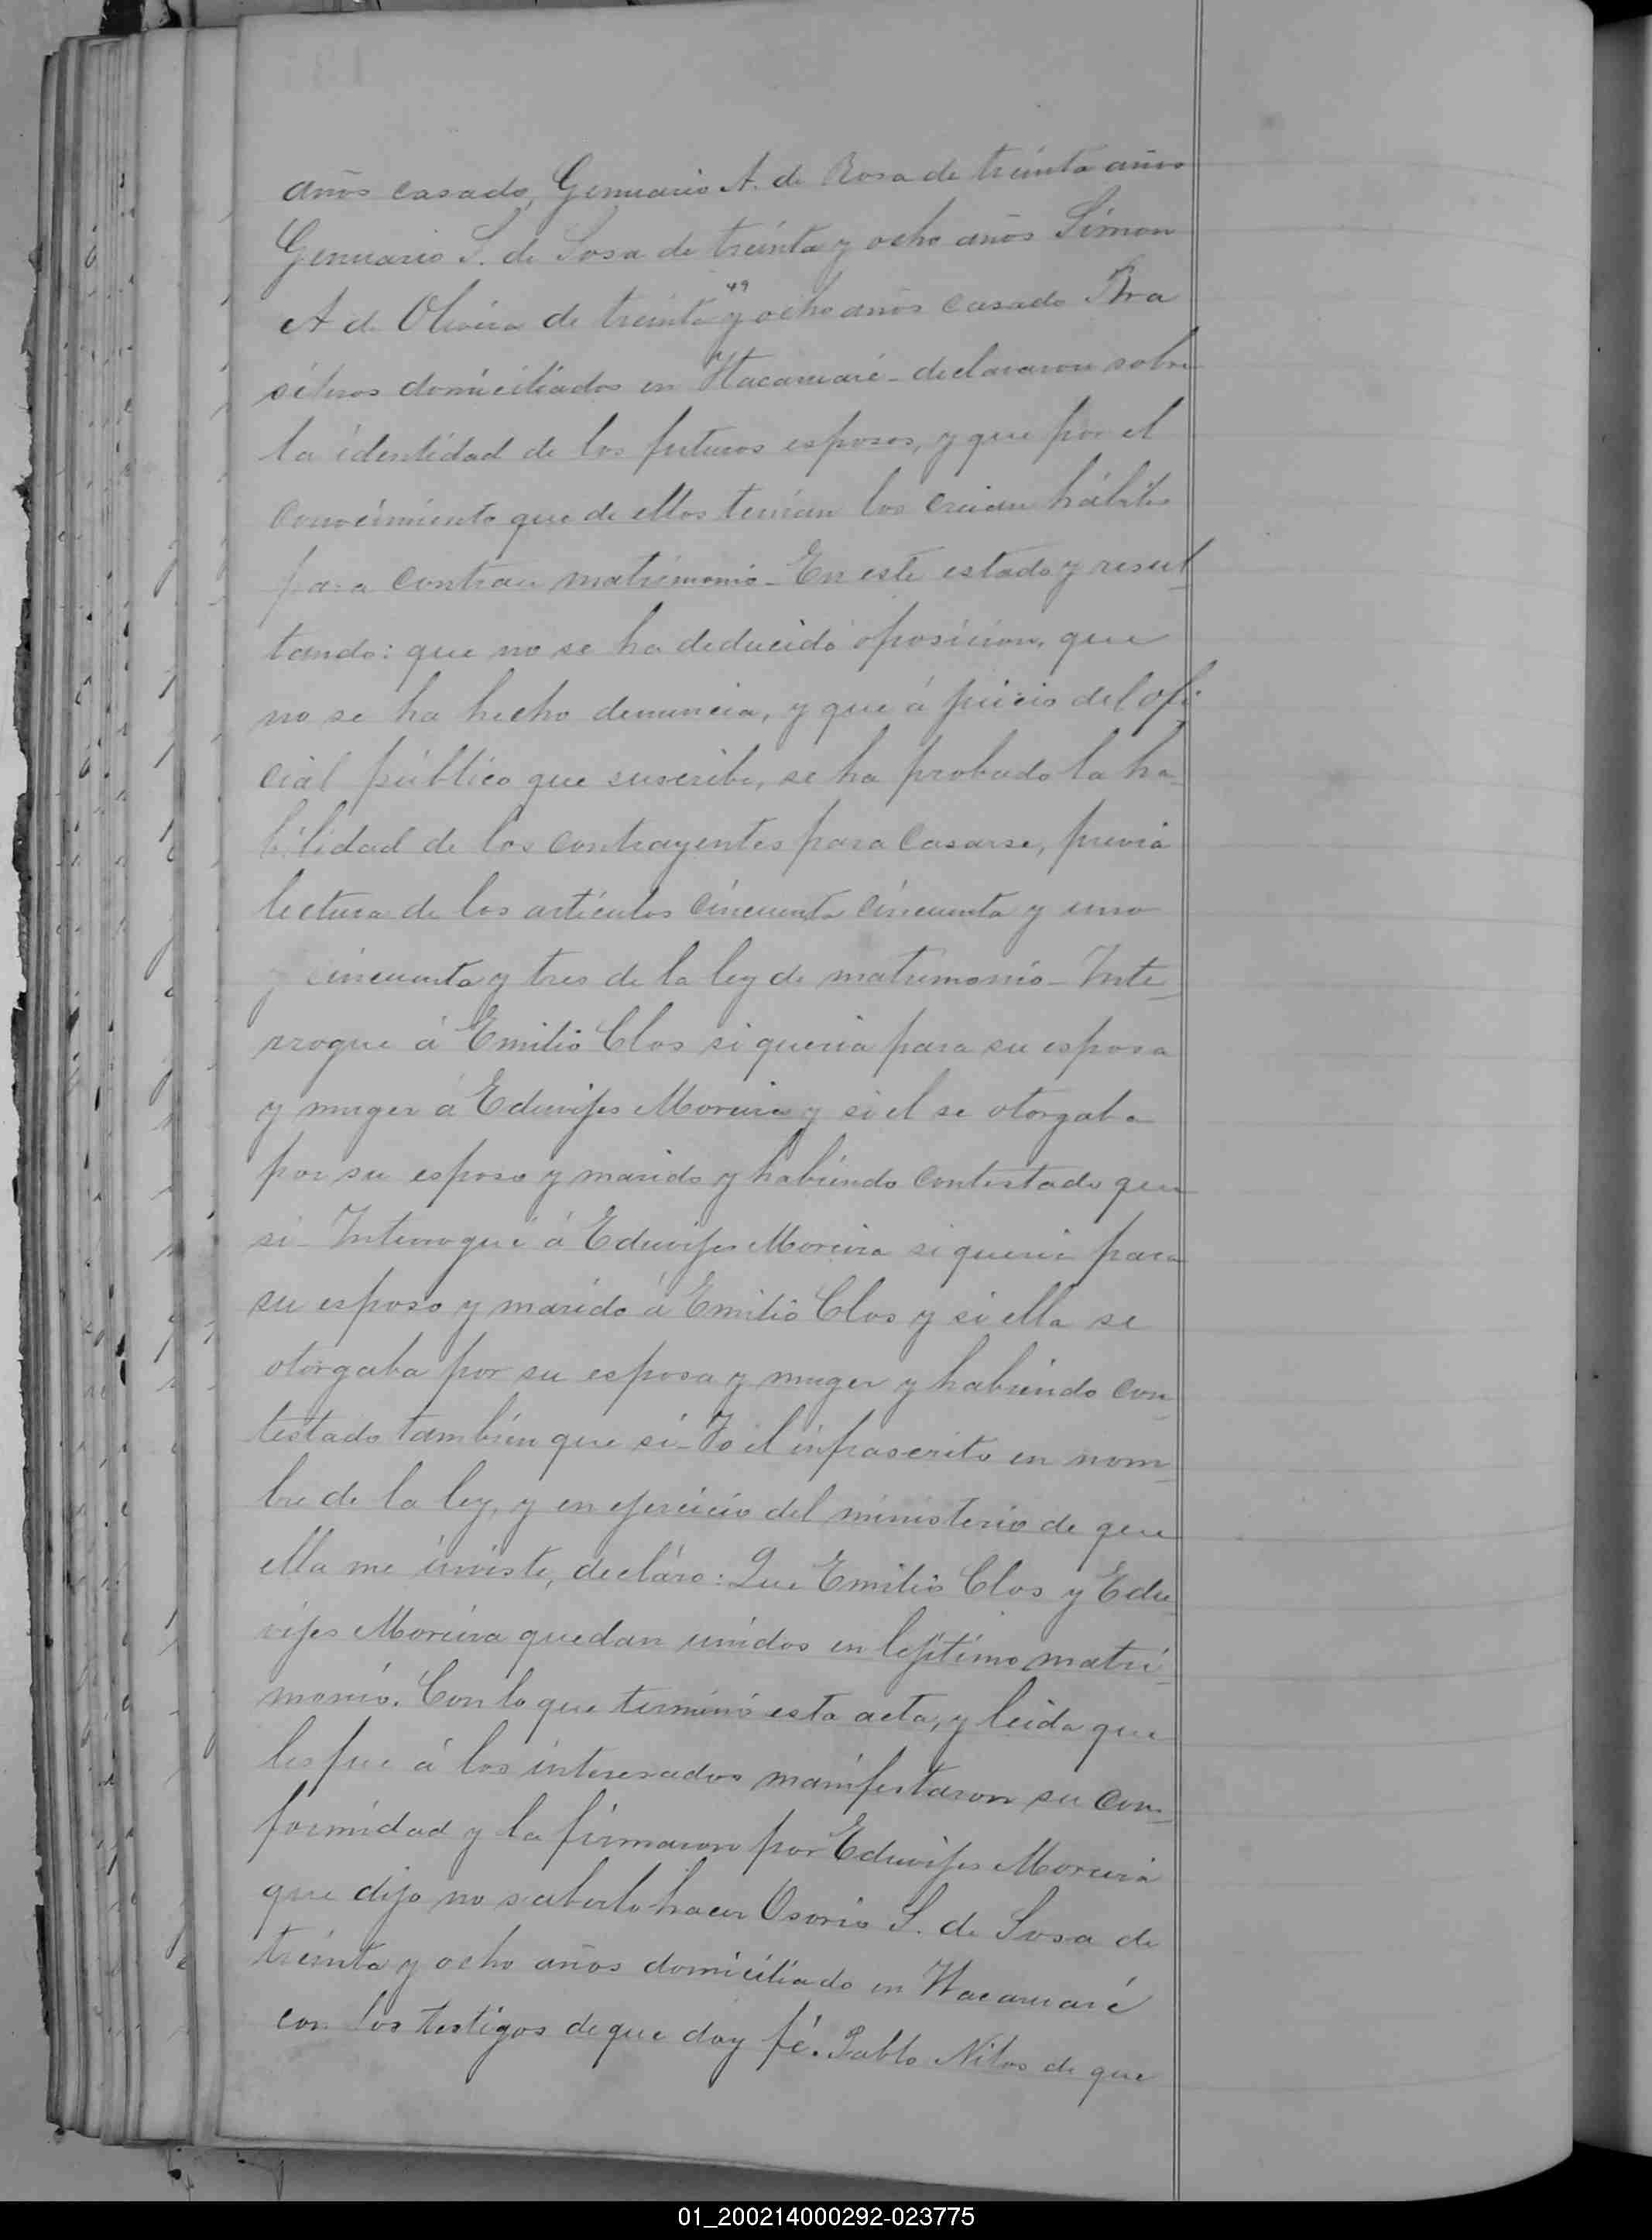 años casado, Genuario A. de Rosa de treinta años
Genuario S. de Sosa de treinta y ocho años Simon
A de Olivera de treinta y ocho años casado Bra
49
sileros domiciliados en Itacaruaré - declararon sobre
la identidad de los futuros esposos, y que por el
conocimiento que de ellos tenian los creian hábiles
para contraer matrimonio - En este estado y resul
tando: que no se ha deducido oposicion, que
no se ha hecho denuncia, y que á juicio del ofi
cial público que suscribe, se ha probado la ha
bilidad de los contrayentes para casarse, previa
lectura de los articulos cincuenta cincuenta y uno
y cincuenta y tres de la ley de matrimonio - Inte
rrogue á Emilio Clos si queria para su esposa
y muger á Eduvijes Moreira y si el se otorgaba
por su esposo y marido y habiendo contestado que
si - Interrogué á Eduvijes Moreira si queria para
su esposo y marido á Emilio Clos y si ella se
otorgaba por su esposa y muger y habiendo con
testado tambien que si - Yo el infrascrito en nom
bre de la ley, y en ejercicio del ministerio de que
ella me inviste, declaro: Que Emilio Clos y Edu
vijes Moreira quedan unidos en lejitimo matri
monio. Con lo que terminó esta acta, y leida que
les fue á los interesados manifestaron su con
formidad y la firmaron por Eduvijes Moreira
que dijo no saberlo hacer Osorio S. de Sosa de
treinta y ocho años domiciliado en Itacaruaré
con los testigos de que doy fé. Pablo Nilos de que
01_200214000292-023775